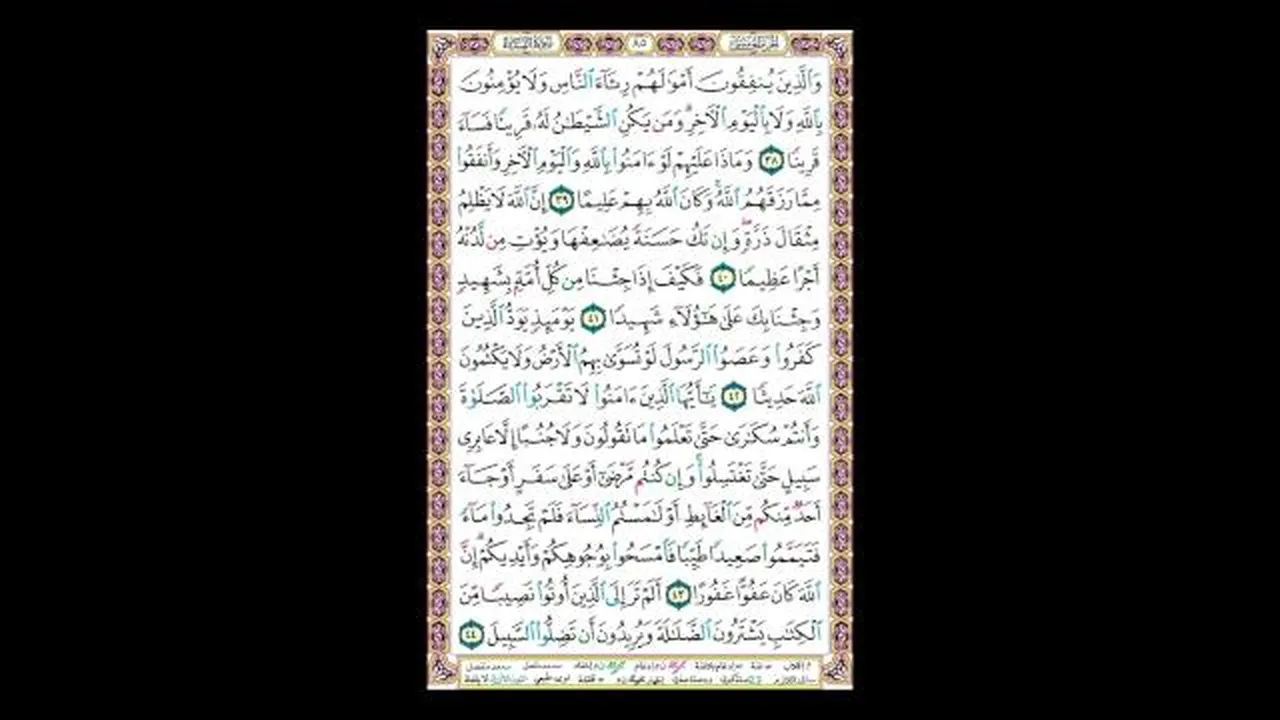 سورة النساء ٨٥ الجزء الخامس
وَٱلَّذِينَ يُنفِقُونَ أَمْوَٰلَهُمْ رِئَآءَ ٱلنَّاسِ وَلَا يُؤْمِنُونَ
بِٱللَّهِ وَلَا بِٱلْيَوْمِ ٱلْـَٔاخِرِ ۗ وَمَن يَكُنِ ٱلشَّيْطَٰنُ لَهُۥ قَرِينًا فَسَآءَ
قَرِينًا ٣٨ وَمَاذَا عَلَيْهِمْ لَوْ ءَامَنُوا۟ بِٱللَّهِ وَٱلْيَوْمِ ٱلْـَٔاخِرِ وَأَنفَقُوا۟
مِمَّا رَزَقَهُمُ ٱللَّهُ ۚ وَكَانَ ٱللَّهُ بِهِمْ عَلِيمًا ٣٩ إِنَّ ٱللَّهَ لَا يَظْلِمُ
مِثْقَالَ ذَرَّةٍ ۖ وَإِن تَكُ حَسَنَةً يُضَٰعِفْهَا وَيُؤْتِ مِن لَّدُنْهُ
أَجْرًا عَظِيمًا ٤٠ فَكَيْفَ إِذَا جِئْنَا مِن كُلِّ أُمَّةٍۭ بِشَهِيدٍ
وَجِئْنَا بِكَ عَلَىٰ هَٰٓؤُلَآءِ شَهِيدًا ٤١ يَوْمَئِذٍ يَوَدُّ ٱلَّذِينَ
كَفَرُوا۟ وَعَصَوُا۟ ٱلرَّسُولَ لَوْ تُسَوَّىٰ بِهِمُ ٱلْأَرْضُ وَلَا يَكْتُمُونَ
ٱللَّهَ حَدِيثًا ٤٢ يَٰٓأَيُّهَا ٱلَّذِينَ ءَامَنُوا۟ لَا تَقْرَبُوا۟ ٱلصَّلَوٰةَ
وَأَنتُمْ سُكَٰرَىٰ حَتَّىٰ تَعْلَمُوا۟ مَا تَقُولُونَ وَلَا جُنُبًا إِلَّا عَابِرِى
سَبِيلٍ حَتَّىٰ تَغْتَسِلُوا۟ ۚ وَإِن كُنتُم مَّرْضَىٰٓ أَوْ عَلَىٰ سَفَرٍ أَوْ جَآءَ
أَحَدٌ مِّنكُم مِّنَ ٱلْغَآئِطِ أَوْ لَٰمَسْتُمُ ٱلنِّسَآءَ فَلَمْ تَجِدُوا۟ مَآءً
فَتَيَمَّمُوا۟ صَعِيدًا طَيِّبًا فَٱمْسَحُوا۟ بِوُجُوهِكُمْ وَأَيْدِيكُمْ ۗ إِنَّ
ٱللَّهَ كَانَ عَفُوًّا غَفُورًا ٤٣ أَلَمْ تَرَ إِلَى ٱلَّذِينَ أُوتُوا۟ نَصِيبًا مِّنَ
ٱلْكِتَٰبِ يَشْتَرُونَ ٱلضَّلَٰلَةَ وَيُرِيدُونَ أَن تَضِلُّوا۟ ٱلسَّبِيلَ ٤٤